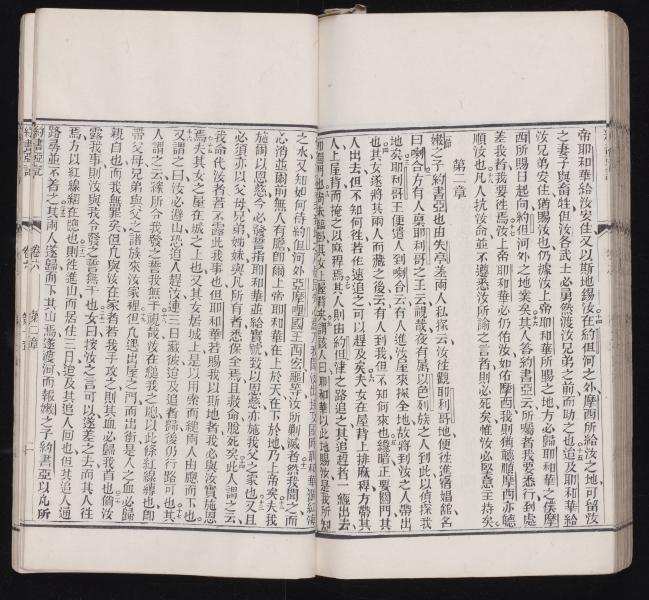 帝耶和華給汝安住又以斯地錫汝在約但河之外摩西所給汝之地可留汝
之妻子與畜牲但汝各武士必勇然渡汝兄弟之前而助之也迨及耶和華給
汝兄弟安住猶賜汝也仍據汝上帝耶和華所賜之地方必歸耶和華之僕摩
西所賜日起向約但河外之地業矣其人答約書亞云所囑者我要悉行到處
差我者我要徃焉汝上帝耶和華必仍佑汝如佑摩西我則猶聽順摩西亦聽
順汝也凡人抗汝命並不遵悉汝所諭之言者則必死矣惟汝必堅意主持矣
第二章
嫩之子約書亞也由失亭差兩人私探云汝徃觀耶利哥地便徃進宿娼舘名
曰喇合方有人稟耶利哥之王云視哉夜有屬以色列族之人到此以偵探我
地矣耶利哥王便遣人到喇合云有人進汝屋來探全地故將到汝之人帶出
也其女遂將其兩人而藏之後云有人到我但不知何來也纔暗正要閉門其
人出去但不知何徃若作速追之可以趕及矣夫女在屋背上排麻稈方帶其
人上屋背而掩之以麻稈焉其人則由約但津之路追之其追趕者一經出去
女上屋背矣謂該人曰耶和華以此地賜汝是我所知
之水又知如何待約但河外亞摩哩國王西宏噩等汝所剿滅者然我聞之而
心消並爾前無人有膽卽爾上帝耶和華在上於天在下於地乃上帝矣夫我
施汝以恩慈今必發誓指耶和華並給實號我以恩慈亦施我父之家也又且
必須亦以父母兄弟姊妹與凡所有者悉保全焉且救命脫死矣此人謂之云
我命代汝者若不露此我事也但耶和華若賜我以斯地者我必與汝實施恩
焉夫其女之屋在城之上也又其女居城上是以用索而縋兩人由應而下也
又謂之曰汝必避山恐追人趕汝連三日藏彼迨及追者歸後仍行路可也其
人謂之云緣所令我發之誓我無干視哉汝在縋我之應以此條紅線縛也卽
帶父母兄弟與父之諸族來汝家裡但凡遜出屋之門而出街是人之血必歸
親自也而我無罪矣但凡與汝在家者若我手攻之則其血必歸我首也倘汝
露我事則汝與我令發之誓無干也女曰按汝之言可以遂差之去而其人徃
焉方以紅線結在應也則徃進山而居住三日迨及其追人回也但其追人通
路尋並不着之其兩人遂歸而下其山焉遂渡河而報嫩之子約書亞以凡所
約書亞記
卷六
第二章